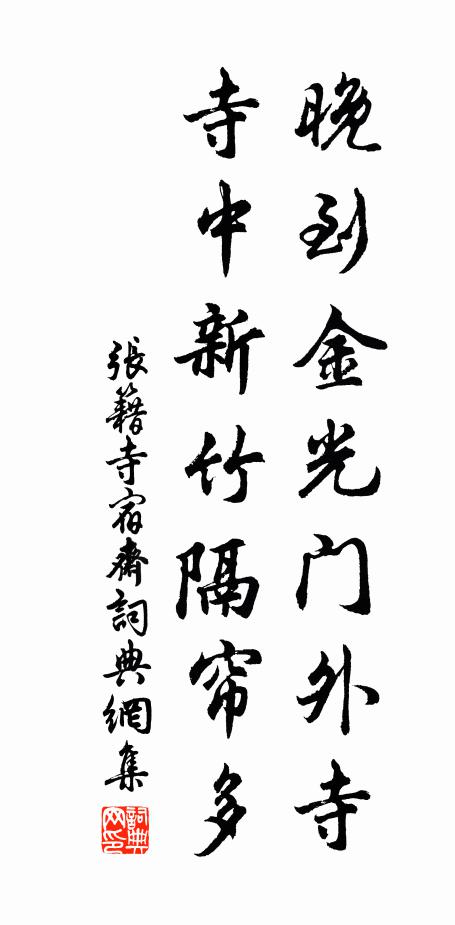 晚到金光门外寺
寺中新竹隔帘多
張籍寺宿齋詞典網集
詞典网印